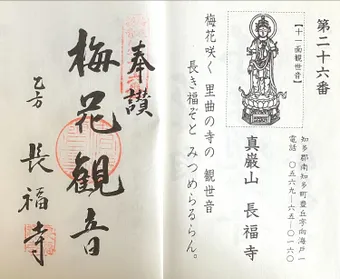 第二十六番
【十一面観世音】
知多郡南知多町豊丘字向海戸一
電話 〇五六九-六五-〇一六〇
真巌山 長福寺
梅花咲く 里曲の寺の 観世音
長き福ぞと みつめらるらん。
奉讃
梅花観音
乙方 長福寺